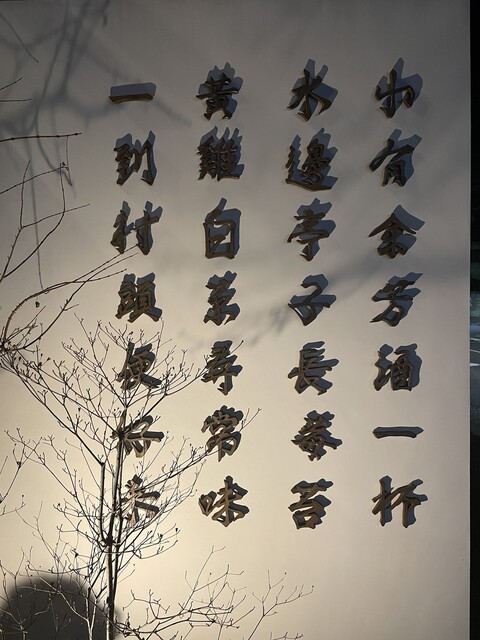 山有余芳酒一杯
水邊亭子長莓苔
黃雞白菜尋常味
一到村頭便好來